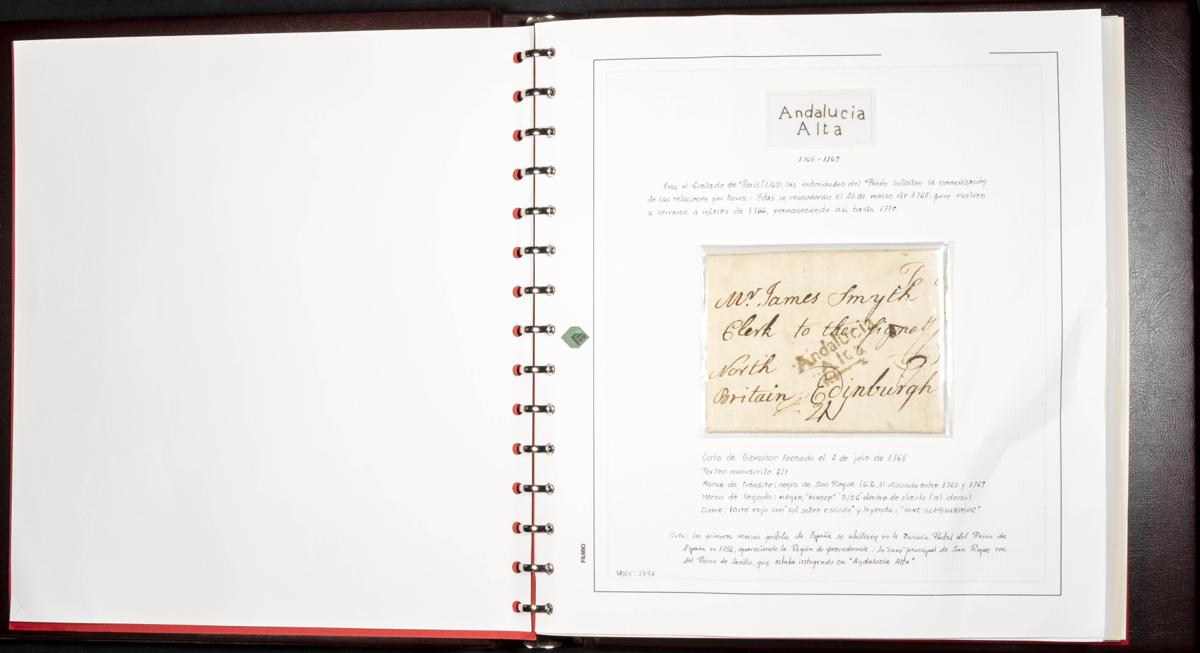 Andalucia
Alta
1.765 - 1.769
Tras el Tratado de París (1.763), las autoridades del Peñón solicitan la normalización
de las relaciones por tierra.- Estas se reanudarán el 26 de marzo de 1.765, pero vuelven
a cerrarse a de 1.766, permaneciendo así hasta
Mr. James Smyth
Clerk to the Signet
Andalucia
Alta
North
Britain Edinburgh
2/1
Carta de Gibraltar fechada el 2 de julio de 1.765
Porteo manuscrito 2/1
Marca de tránsito: negra de San Roque (G.E.1) utilizada entre 1765 y 1769
Marca de llegada: negra, "BISHOP" "D/26" dentro de círculo (al dorso)
Cierre: lacre rojo con "sol sobre escudo" y leyenda:
Nota: Las primeras marcas postales de España se en la División Postal del Reino de
España en 1756, apareciendo la Región de procedencia: la "zona" principal de San Roque era
del Reino de Sevilla, que estaba integrado en "Andalucia Alta".
FILABO